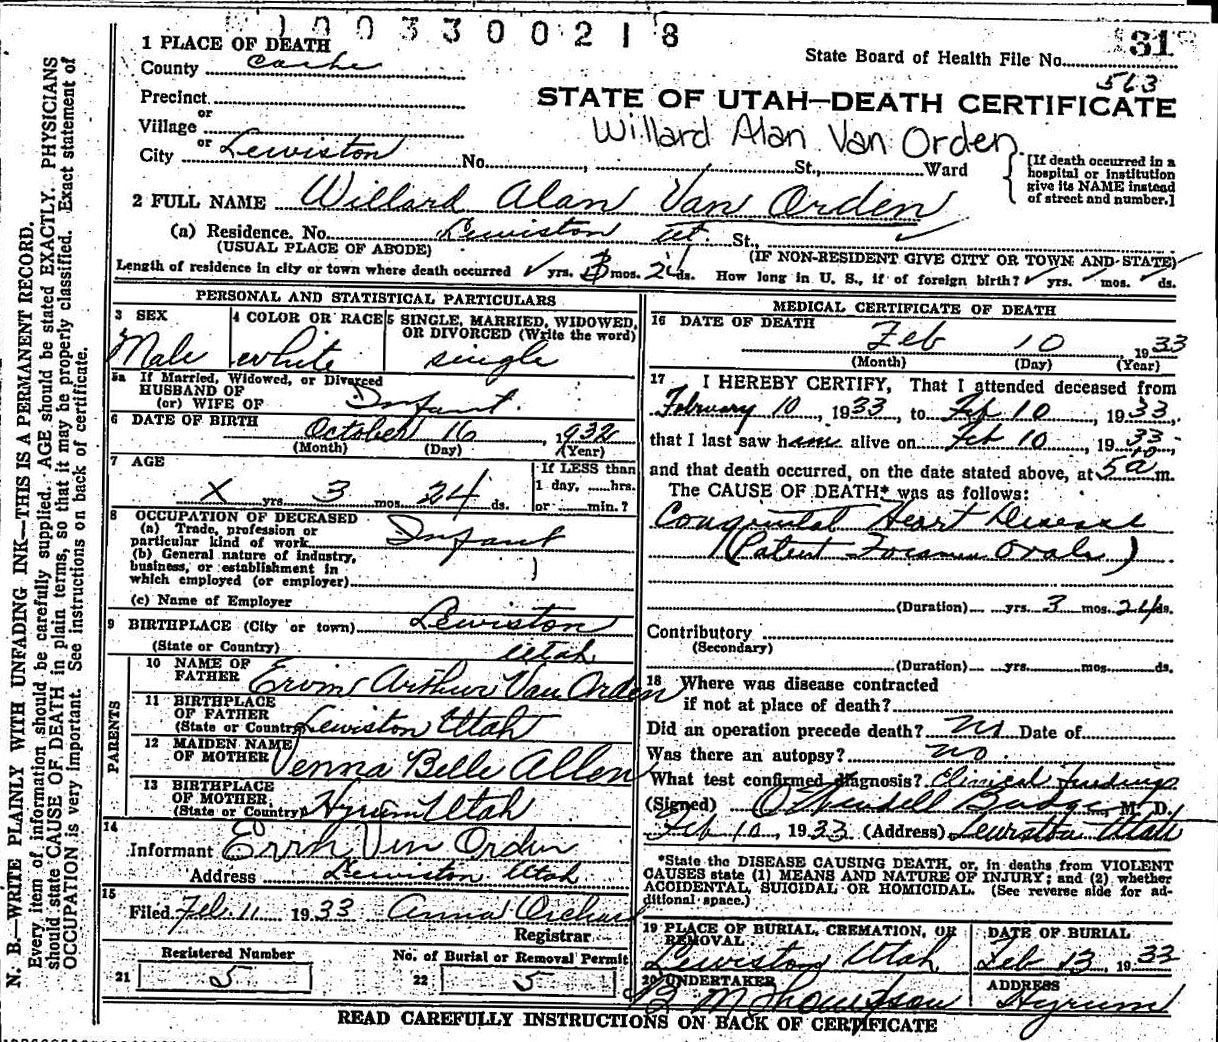 1003300218
31
1 PLACE OF DEATH
State Board of Health File No.
County Cache
563
Precinct
STATE OF UTAH—DEATH CERTIFICATE
or
Village
Willard Alan Van Orden
or
City Lewiston No. , St., Ward
[If death occurred in a
hospital or institution
give its NAME instead
of street and number.]
2 FULL NAME Willard Alan Van Orden
(a) Residence. No. Lewiston Ut. St.,
(USUAL PLACE OF ABODE) (IF NON-RESIDENT GIVE CITY OR TOWN AND STATE)
Length of residence in city or town where death occurred yrs. 3 mos. 24 ds. How long in U. S., if of foreign birth? yrs. mos. ds.
PERSONAL AND STATISTICAL PARTICULARS
3 SEX
Male
4 COLOR OR RACE
white
5 SINGLE, MARRIED, WIDOWED,
OR DIVORCED (Write the word)
single
5a If Married, Widowed, or Divorced
HUSBAND OF
(or) WIFE OF Infant.
6 DATE OF BIRTH October 16, 1932
(Month) (Day) (Year)
7 AGE
X yrs. 3 mos. 24 ds.
If LESS than
1 day, hrs.
or min.?
8 OCCUPATION OF DECEASED
(a) Trade, profession or
particular kind of work Infant
(b) General nature of industry,
business, or establishment in
which employed (or employer)
(c) Name of Employer
9 BIRTHPLACE (City or town) Lewiston
(State or Country) Utah
PARENTS
10 NAME OF
FATHER Ervin Arthur Van Orden
11 BIRTHPLACE
OF FATHER
(State or Country) Lewiston Utah
12 MAIDEN NAME
OF MOTHER Venna Belle Allen
13 BIRTHPLACE
OF MOTHER,
(State or Country) Hyrum Utah
14
Informant Van Orden
Address Lewiston Utah
15
Filed Feb. 11 1933 Anna Orchard
Registrar
Registered Number
21 5
No. of Burial or Removal Permit
22 5
MEDICAL CERTIFICATE OF DEATH
16 DATE OF DEATH
Feb 10, 1933
(Month) (Day) (Year)
17 I HEREBY CERTIFY, That I attended deceased from
February 10, 1933, to Feb 10, 1933,
that I last saw him alive on Feb 10, 1933
and that death occurred, on the date stated above, at 5 a m.
The CAUSE OF DEATH* was as follows:
Congenital Heart Disease
(Patent Foramen Ovale)
(Duration) yrs. 3 mos. 24 ds.
Contributory
(Secondary)
(Duration) yrs. mos. ds.
18 Where was disease contracted
if not at place of death?
Did an operation precede death? No Date of
Was there an autopsy? no.
What test confirmed diagnosis? Clinical Findings
(Signed) O Wendell Budge, M. D.
Feb 10, 1933 (Address) Lewiston Utah
*State the DISEASE CAUSING DEATH, or, in deaths from VIOLENT
CAUSES state (1) MEANS AND NATURE OF INJURY; and (2) whether
ACCIDENTAL, SUICIDAL OR HOMICIDAL. (See reverse side for ad-
ditional space.)
19 PLACE OF BURIAL, CREMATION, OR
REMOVAL
Lewiston Utah
DATE OF BURIAL
Feb 13, 1933
20 UNDERTAKER
B M Thompson
ADDRESS
Hyrum
READ CAREFULLY INSTRUCTIONS ON BACK OF CERTIFICATE
N. B.—WRITE PLAINLY WITH UNFADING INK—THIS IS A PERMANENT RECORD.
Every item of information should be carefully supplied. AGE should be stated EXACTLY. PHYSICIANS
should state CAUSE OF DEATH in plain terms, so that it may be properly classified. Exact statement of
OCCUPATION is very important. See instructions on back of certificate.